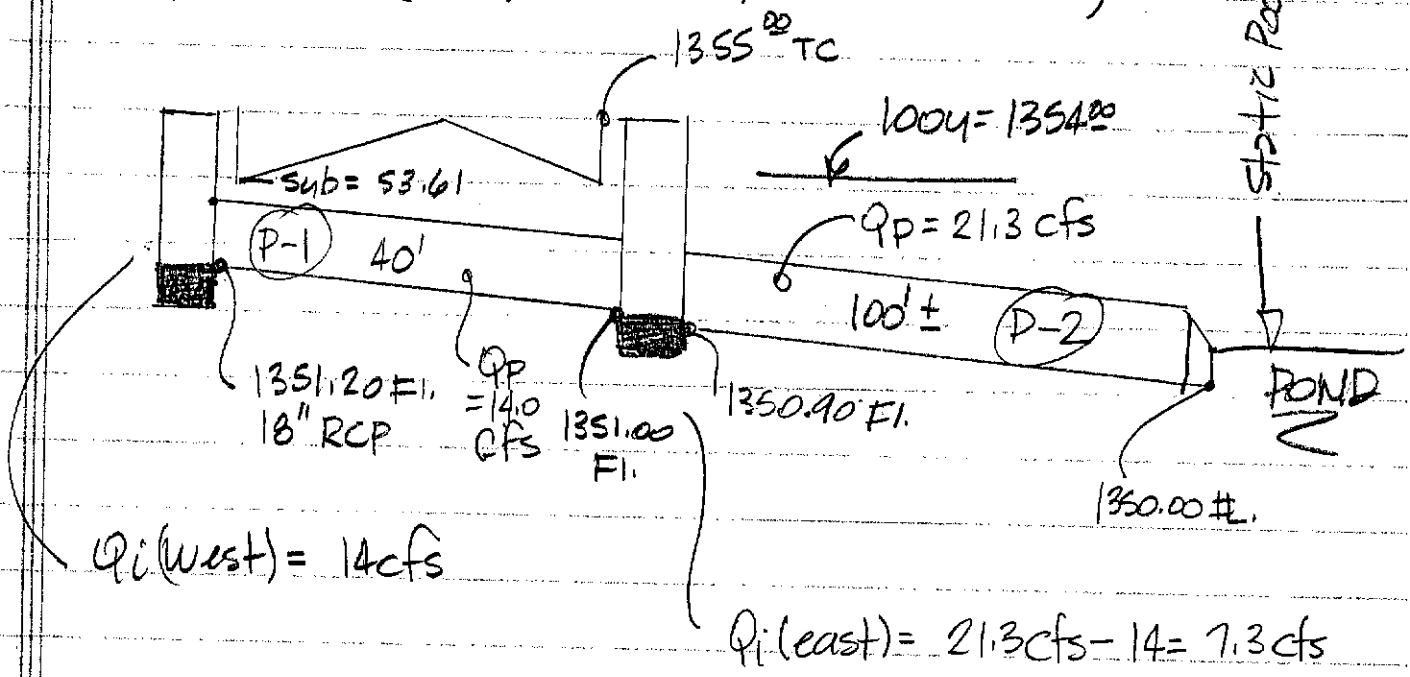 1355.00 TC
100y = 1354.00
sub = 53.61
Qp = 21.3 cfs
P-1
40'
100' ±
P-2
1351.20 Fl.
18" RCP
Qp
= 14.0
cfs
1351.00
Fl.
1350.90 Fl.
POND
1350.00 FL.
Qi (west) = 14cfs
Qi (east) = 21.3cfs - 14 = 7.3 cfs